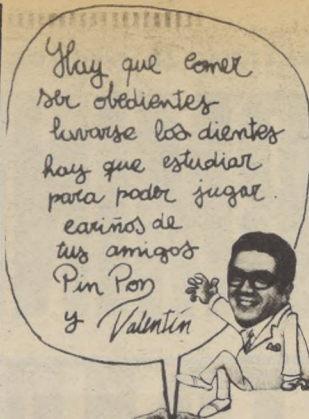 Hay que comer
ser obedientes
lavarse los dientes
hay que estudiar
para poder jugar.
cariños de
tus amigos
Pin Pon
y Valentín